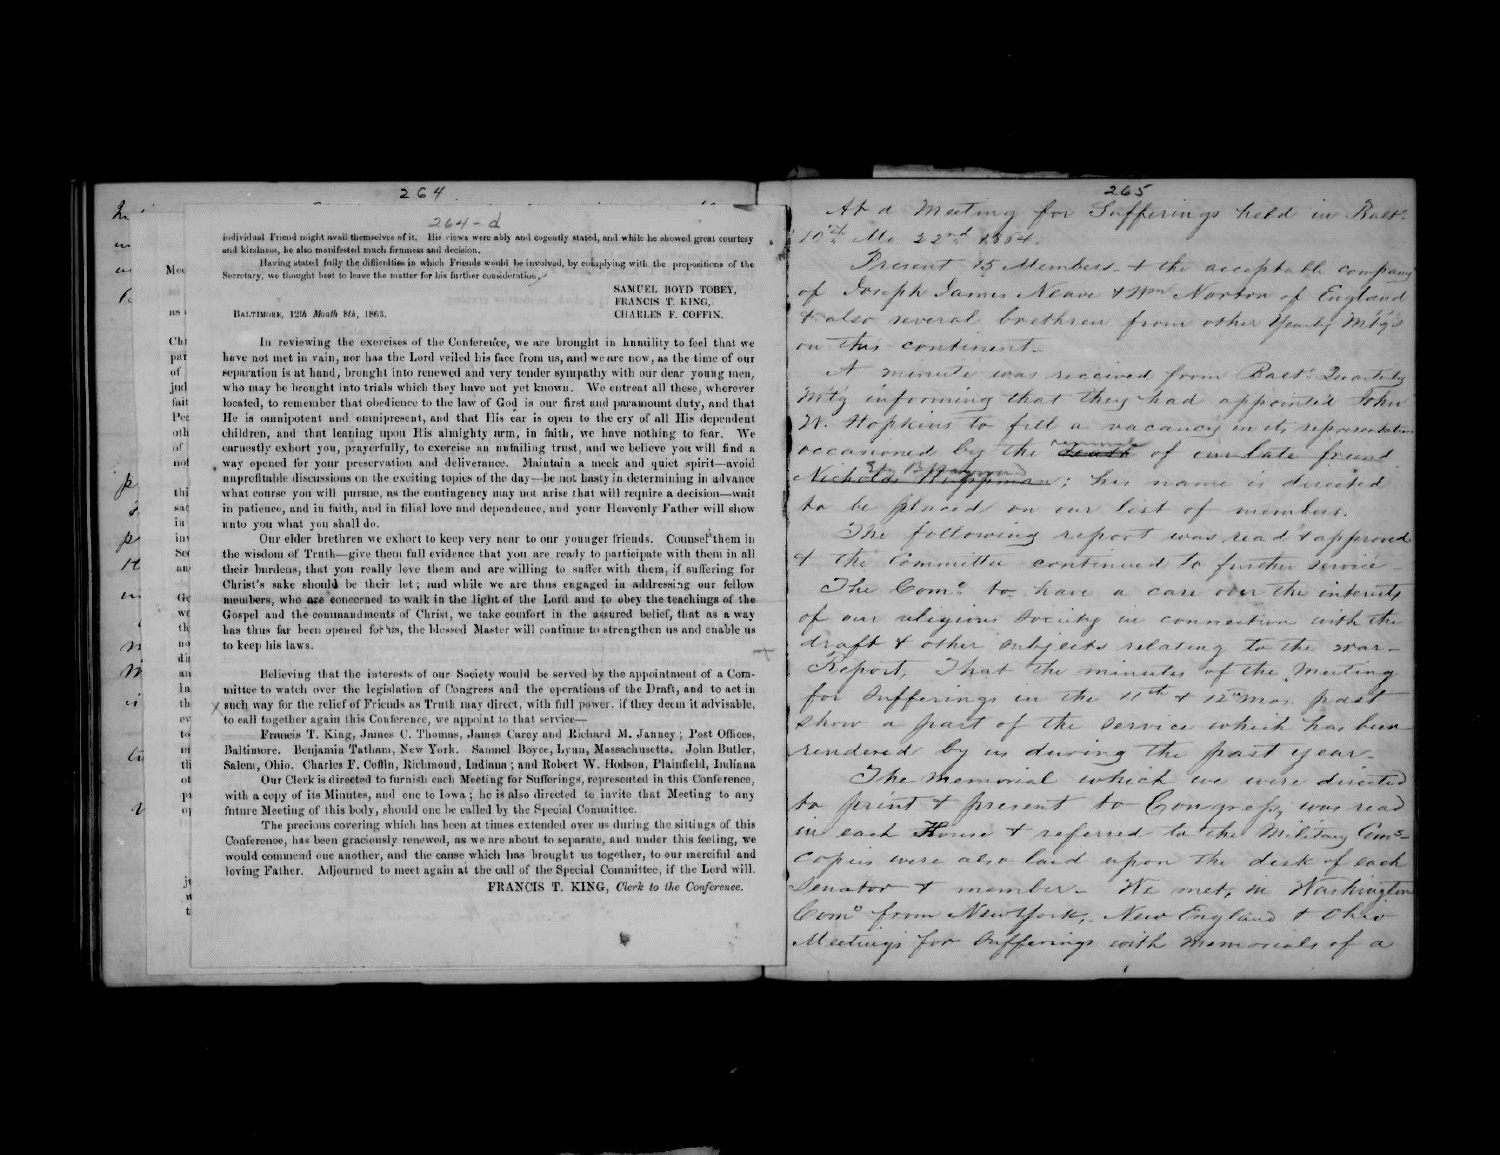 264
264-d
individual Friend might avail themselves of it. His views were ably and cogently stated, and while he showed great courtesy
and kindness, he also manifested much firmness and decision.
Having stated fully the difficulties in which Friends would be involved, by complying with the propositions of the
Secretary, we thought best to leave the matter for his further consideration.
SAMUEL BOYD TOBEY,
FRANCIS T. KING,
BALTIMORE, 12th Month 8th, 1863. CHARLES F. COFFIN.
In reviewing the exercises of the Conference, we are brought in humility to feel that we
have not met in vain, nor has the Lord veiled his face from us, and we are now, as the time of our
separation is at hand, brought into renewed and very tender sympathy with our dear young men,
who may be brought into trials which they have not yet known. We entreat all these, wherever
located, to remember that obedience to the law of God is our first and paramount duty, and that
He is omnipotent and omnipresent, and that His ear is open to the cry of all His dependent
children, and that leaning upon His almighty arm, in faith, we have nothing to fear. We
earnestly exhort you, prayerfully, to exercise an unfailing trust, and we believe you will find a
way opened for your preservation and deliverance. Maintain a meek and quiet spirit—avoid
unprofitable discussions on the exciting topics of the day—be not hasty in determining in advance
what course you will pursue, as the contingency may not arise that will require a decision—wait
in patience, and in faith, and in filial love and dependence, and your Heavenly Father will show
unto you what you shall do.
Our elder brethren we exhort to keep very near to our younger friends. Counsel them in
the wisdom of Truth—give them full evidence that you are ready to participate with them in all
their burdens, that you really love them and are willing to suffer with them, if suffering for
Christ's sake should be their lot; and while we are thus engaged in addressing our fellow
members, who are concerned to walk in the light of the Lord and to obey the teachings of the
Gospel and the commandments of Christ, we take comfort in the assured belief, that as a way
has thus far been opened for us, the blessed Master will continue to strengthen us and enable us
to keep his laws.
Believing that the interests of our Society would be served by the appointment of a Com-
mittee to watch over the legislation of Congress and the operations of the Draft, and to act in
such way for the relief of Friends as Truth may direct, with full power, if they deem it advisable,
to call together again this Conference, we appoint to that service—
Francis T. King, James C. Thomas, James Carey and Richard M. Janney; Post Offices,
Baltimore. Benjamin Tatham, New York. Samuel Boyce, Lynn, Massachusetts. John Butler,
Salem, Ohio. Charles F. Coffin, Richmond, Indiana; and Robert W. Hodson, Plainfield, Indiana
Our Clerk is directed to furnish each Meeting for Sufferings, represented in this Conference,
with a copy of its Minutes, and one to Iowa; he is also directed to invite that Meeting to any
future Meeting of this body, should one be called by the Special Committee.
The precious covering which has been at times extended over us during the sittings of this
Conference, has been graciously renewed, as we are about to separate, and under this feeling, we
would commend one another, and the cause which has brought us together, to our merciful and
loving Father. Adjourned to meet again at the call of the Special Committee, if the Lord will.
FRANCIS T. KING, Clerk to the Conference.
265
At a Meeting for Sufferings held in Balt:
10th Mo 22nd 1864.
Present 15 Members & the acceptable company
of Joseph James Neave & Wm Norton of England
& also several brethren from other Yearly Mtgs
on this continent.
A minute was received from Balt: Quarterly
Mtg informing that they had appointed John
W. Hopkins to fill a vacancy in its representation
occasioned by the removal death of our late friend
Nicholas; his name is directed
to be placed on our list of members.
The following report was read & approved
& the Committee continued to further service—
The Come to have a care over the interests
of our religious Society in connection with the
draft & other subjects relating to the war—
Report, That the minutes of the Meeting
for Sufferings in the 11th & 12th Mos. past
show a part of the service which has been
rendered by us during the past year—
The Memorial which we were directed
to print & present to Congress, was read
in each House & referred to the Military Come—
copies were also laid upon the desk of each
Senator & member— We met, in Washington
Come from New York, New England & Ohio
Meetings for Sufferings with memorials of a